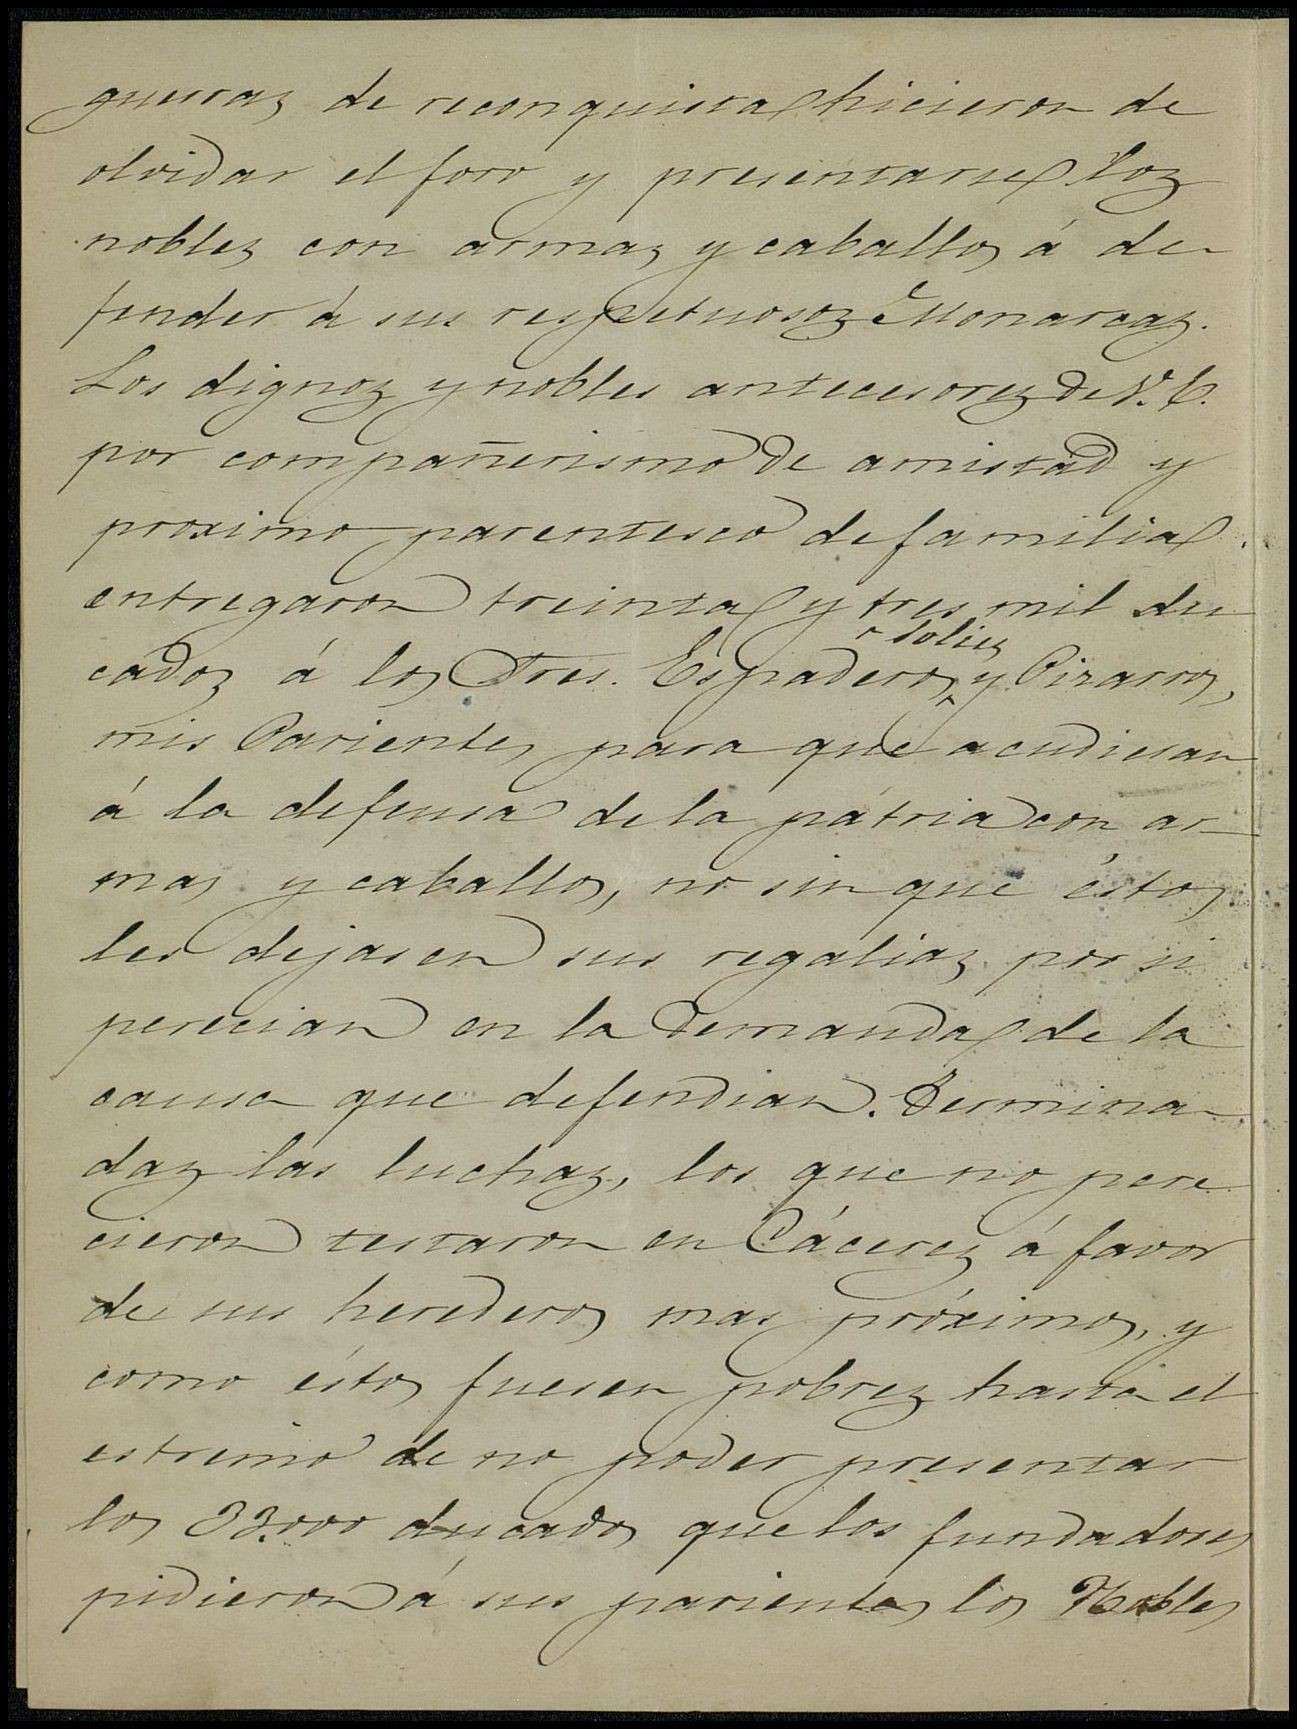 guerras de reconquista hicieron de
olvidar el foro y presentarse los
nobles con armas y caballos á de-
fender á sus respetuosos Monarcas.
Los dignos y nobles antecesores de V. E.
por compañerismo de amistad y
proximo parentesco de familia
entregaron treinta y tres mil du
cados á los Tres. Espaderos, Solis y Pizarros,
mis Parientes para que acudiesan
á la defensa de la pátria con ar-
mas y caballos, no sin que éstos
les dejasen sus regalias por si
perecian en la demanda de la
causa que defendian. Termina-
das las luchas, los que no pere
cieron testaron en Cáceres á favor
de sus herederos mas próximos, y
como éstos fuesen pobres hasta el
estremo de no poder presentar
los 33.000 ducados que los fundadores
pidieron á sus parientes los Nobles